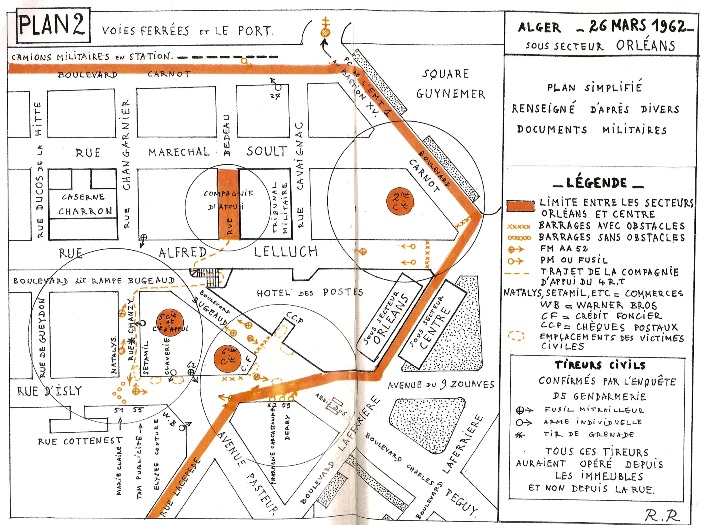 PLAN 2
VOIES FERRÉES ET LE PORT.
CAMIONS MILITAIRES EN STATION.
BOULEVARD CARNOT
SQUARE
GUYNEMER
BASTION XV.
BOULEVARD
CARNOT
RUE DUCOS DE LA HITTE
RUE CHANGARNIER
BEDEAU
RUE CAVAIGNAC
24
RUE MARECHAL SOULT
CASERNE
CHARRON
COMPAGNIE
D'APPUI
RUE
TRIBUNAL
MILITAIRE
RUE ALFRED LELLUCH
BOULEVARD dit RAMPE BUGEAUD
BOULEVARD
BUGEAUD
HOTEL DES POSTES
CCP
SOUS SECTEUR
ORLÉANS
SOUS SECTEUR
CENTRE
RUE DE GUEYDON
NATALYS
RUE CHANZY
SETAMIL
CLAVERIE
62
C.F.
RUE D'ISLY
AVENUE DU 9 ZOUAVES
RUE COTTENEST
51
55
MARIE CLAIRE
TAM PUBLICITÉ
ELYSÉE COUTURE
WB
RUE LACÉPÈDE
AVENUE PASTEUR
59
DERBY
BOULEVARD LAFERRIERE
BOULEVARD CHARLES PEGUY.
BOULEVARD LAFERRIERE
ALGER _ 26 MARS 1962_
SOUS SECTEUR ORLÉANS
PLAN SIMPLIFIÉ
RENSEIGNÉ D'APRÈS DIVERS
DOCUMENTS MILITAIRES
_ LÉGENDE _
LIMITE ENTRE LES SECTEURS
ORLÉANS ET CENTRE
BARRAGES AVEC OBSTACLES
BARRAGES SANS OBSTACLES
FM AA 52
PM OU FUSIL
TRAJET DE LA COMPAGNIE
D'APPUI DU 4 R.T
NATALYS, SETAMIL, ETC = COMMERCES
WB = WARNER BROS
CF = CRÉDIT FONCIER
CCP = CHÈQUES POSTAUX
EMPLACEMENTS DES VICTIMES
CIVILES
TIREURS CIVILS
CONFIRMÉS PAR L'ENQUÊTE
DE GENDARMERIE
FUSIL MITRAILLEUR
ARME INDIVIDUELLE
TIR DE GRENADE
TOUS CES TIREURS
AURAIENT OPÉRÉ DEPUIS
LES IMMEUBLES
ET NON DEPUIS LA RUE.
R.R